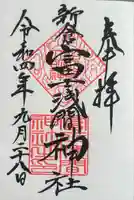 奉拝
新倉富士浅間神社
令和四年九月二十八日